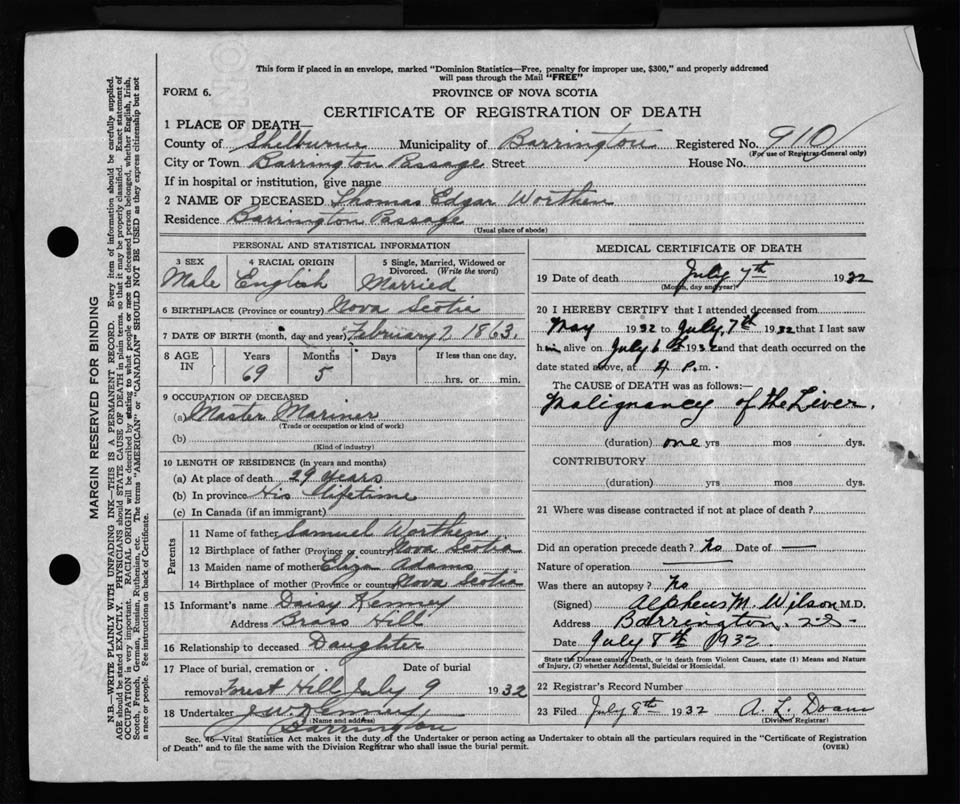 This form if placed in an envelope, marked "Dominion Statistics—Free, penalty for improper use, $300," and properly addressed
will pass through the Mail "FREE"
FORM 6.
PROVINCE OF NOVA SCOTIA
CERTIFICATE OF REGISTRATION OF DEATH
1 PLACE OF DEATH—
County of Shelburne Municipality of Barrington Registered No. 910
(For use of Registrar General only)
City or Town Barrington Passage Street House No.
If in hospital or institution, give name
2 NAME OF DECEASED Thomas Edgar Worthen
Residence Barrington Passage
(Usual place of abode)
PERSONAL AND STATISTICAL INFORMATION
3 SEX 4 RACIAL ORIGIN 5 Single, Married, Widowed or
Divorced. (Write the word)
Male English Married
6 BIRTHPLACE (Province or country) Nova Scotia
7 DATE OF BIRTH (month, day and year) February 7, 1863.
8 AGE IN Years Months Days If less than one day,
69 5 hrs. or min.
9 OCCUPATION OF DECEASED
(a) Master Mariner
(Trade or occupation or kind of work)
(b)
(Kind of industry)
10 LENGTH OF RESIDENCE (in years and months)
(a) At place of death 29 years
(b) In province His lifetime
(c) In Canada (if an immigrant)
Parents
11 Name of father Samuel Worthen
12 Birthplace of father (Province or country) Nova Scotia
13 Maiden name of mother Eliza Adams
14 Birthplace of mother (Province or country) Nova Scotia
15 Informant's name Daisy Kenney
Address Brass Hill
16 Relationship to deceased Daughter
17 Place of burial, cremation or Date of burial
removal Forest Hill July 9 1932
18 Undertaker
(Name and address)
Barrington
MEDICAL CERTIFICATE OF DEATH
19 Date of death July 7th 1932
(Month, day and year)
20 I HEREBY CERTIFY that I attended deceased from
May 1932 to July, 7th 1932 that I last saw
him alive on July 6th 1932 and that death occurred on the
date stated above, at 4 P.m.
The CAUSE OF DEATH was as follows:—
Malignancy of the Liver.
(duration) one yrs mos dys.
CONTRIBUTORY
(duration) yrs mos dys.
21 Where was disease contracted if not at place of death?
Did an operation precede death? No Date of —
Nature of operation —
Was there an autopsy? No
(Signed) Alpheus M. Wilson M.D.
Address Barrington. N.S.
Date July 8th 1932.
State the Disease causing Death, or in death from Violent Causes, state (1) Means and Nature
of Injury, (2) whether Accidental, Suicidal or Homicidal.
22 Registrar's Record Number
23 Filed July 8th 1932 A. L. Doane
(Division Registrar)
Sec. 46—Vital Statistics Act makes it the duty of the Undertaker or person acting as Undertaker to obtain all the particulars required in the "Certificate of Registration
of Death" and to file the same with the Division Registrar who shall issue the burial permit. (OVER)
MARGIN RESERVED FOR BINDING
N.B.—WRITE PLAINLY WITH UNFADING INK—THIS IS A PERMANENT RECORD. Every item of information should be carefully supplied.
AGE should be stated EXACTLY. PHYSICIANS should STATE CAUSE OF DEATH in plain terms, so that it may be properly classified. Exact statement of
OCCUPATION is very important. RACIAL ORIGIN will be described by stating to what people or race the deceased person belonged, whether English, Irish,
Scotch, French, German, Russian, Ruthenian, etc. The terms "AMERICAN" or "CANADIAN" SHOULD NOT BE USED as they express citizenship but not
a race or people. See instructions on back of Certificate.